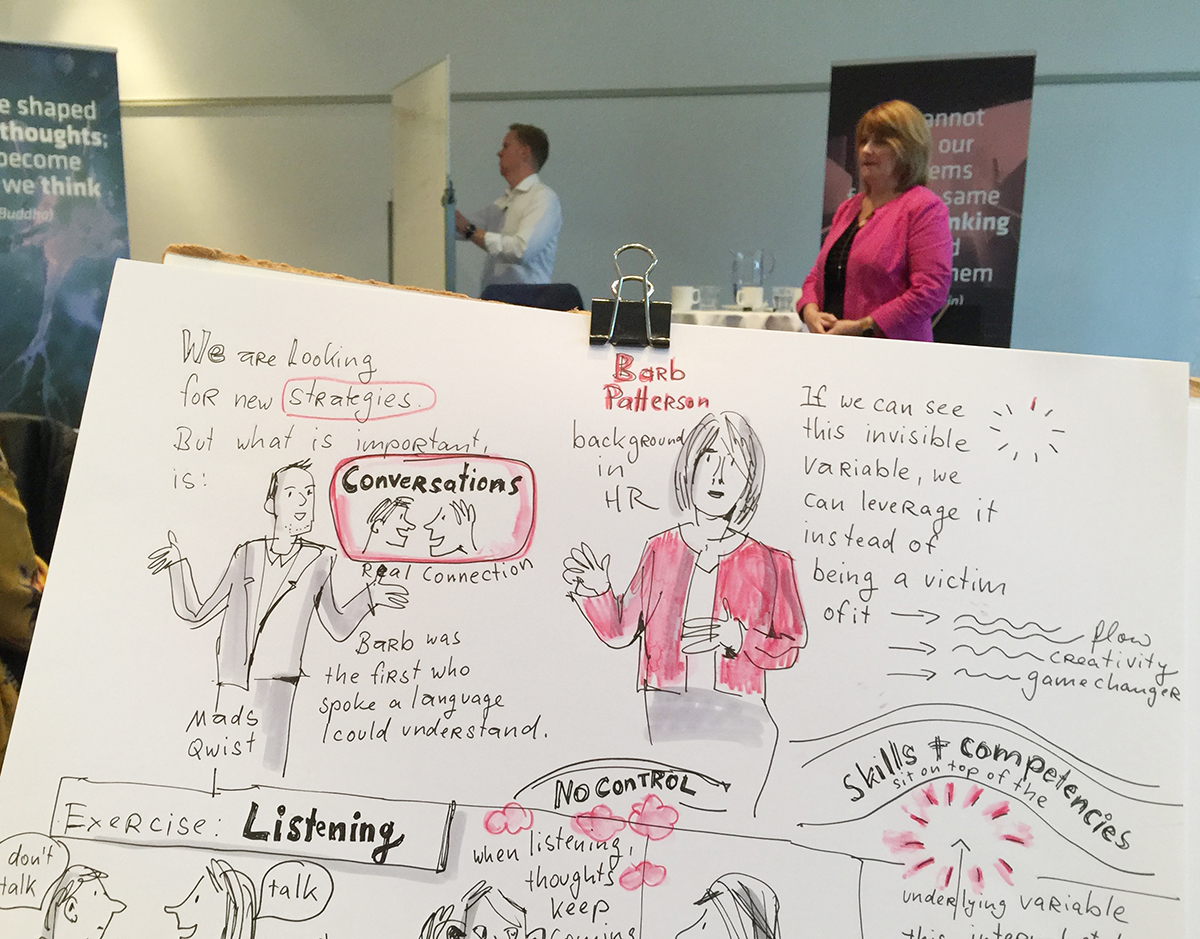 e shaped
thoughts;
become
we think
Buddha)
annot
our
ems
same
nking
d
hem
in)
We are looking
for new strategies.
But what is important,
is:
Conversations
Real connection
Barb was
the first who
spoke a language
I could understand.
Mads
Qwist
Barb
Patterson
background
in
HR
If we can see
this invisible
variable, we
can leverage it
instead of
being a victim
of it
flow
creativity
gamechanger
Exercise: Listening
don't
talk
talk
No Control
when listening,
thoughts
keep
coming
Skills + competencies
sit on top of the
underlying variable
this